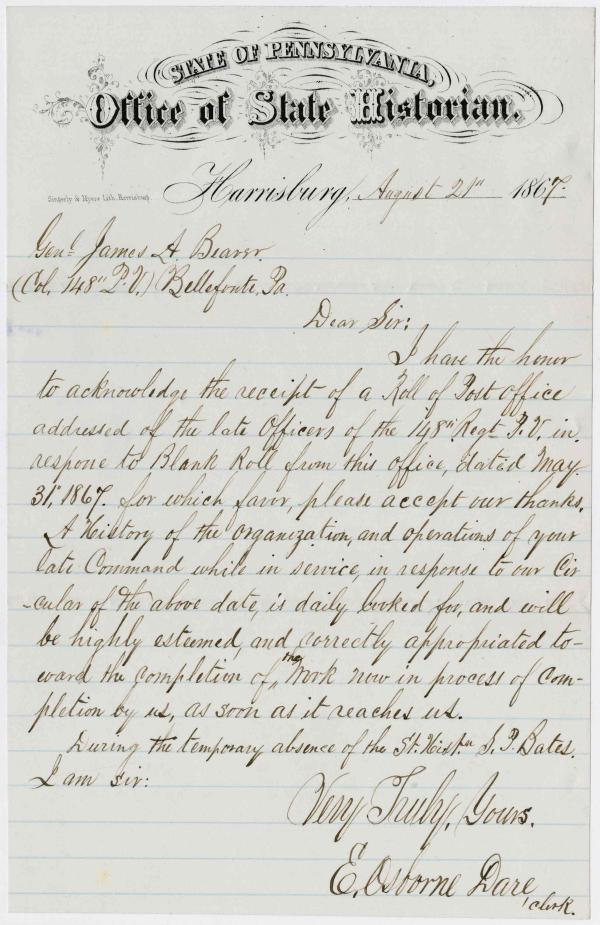 STATE OF PENNSYLVANIA,
Office of State Historian.
Singerly & Myers Lith. Harrisburg.
Harrisburg, August 21st 1867.
Genl James A. Beaver.
(Col. 148th P.V.) Bellefonte, Pa.
Dear Sir:
I have the honor
to acknowledge the receipt of a Roll of Post Office
addressed of the late Officers of the 148th Regt P.V. in
respone to Blank Roll from this office, dated May
31st, 1867. for which favor, please accept our thanks.
A History of the organization, and operations of your
late Command while in service, in response to our Cir
-cular of the above date, is daily looked for, and will
be highly esteemed, and correctly appropriated to-
ward the completion of the Work now in process of com-
pletion by us, as soon as it reaches us.
During the temporary absence of the St. Histn S. P. Bates.
I am sir:
Very Truly, Yours.
E. Osborne Dare
clerk.